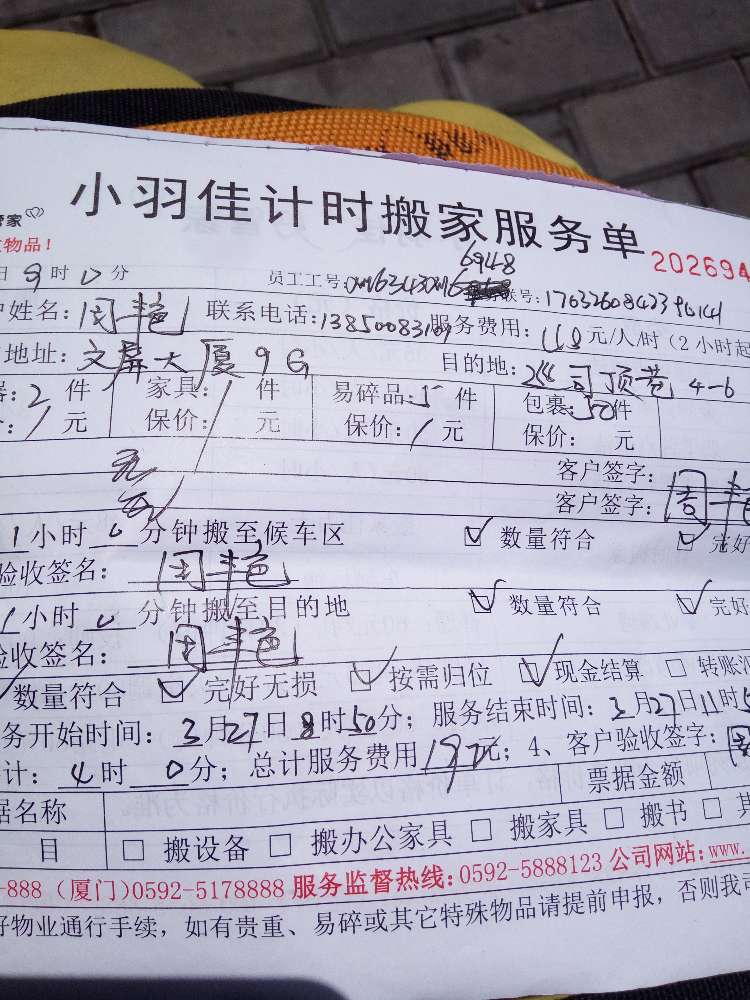 小羽佳计时搬家服务单
管家
物品！
202694
6948
日9时0分 员工工号: 号:
姓名: 联系电话:13850083 服务费用: 元/人/时（2小时起
地址:文屏大厦9G 目的地: 司顶巷4-6
2件 家具: 件 易碎品: 件 包裹:50件
元 保价: 元 保价: 元 保价: 元
无
客户签字:
客户签字:
1小时0分钟搬至候车区 ☑ 数量符合 ☑ 完好
验收签名:
1小时0分钟搬至目的地 ☑ 数量符合 ☑ 完好
验收签名:
数量符合 ☑ 完好无损 ☑ 按需归位 ☑ 现金结算 □ 转账
务开始时间: 3月27日8时50分；服务结束时间: 3月27日11时5
计: 4时 0分；总计服务费用 元；4、客户验收签字:
据名称 票据金额
目 □ 搬设备 □ 搬办公家具 □ 搬家具 □ 搬书 □ 其
-888（厦门）0592-5178888 服务监督热线:0592-5888123 公司网站:www.
好物业通行手续，如有贵重、易碎或其它特殊物品请提前申报，否则我司